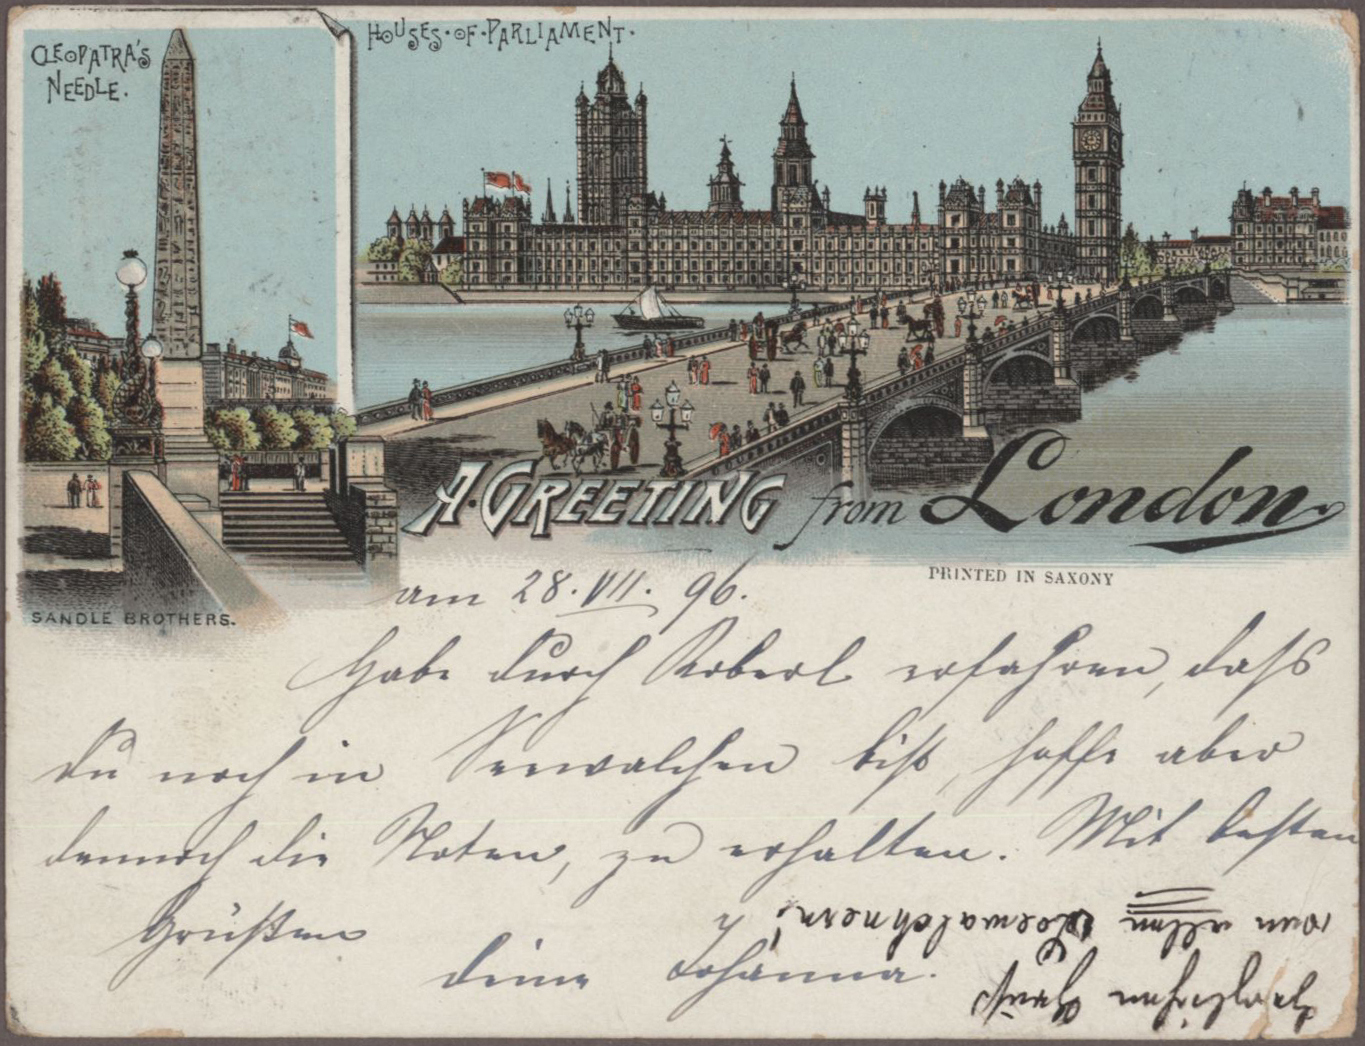 CLEOPATRA'S
NEEDLE.
HOUSES·OF·PARLIAMENT·
A·GREETING from London
PRINTED IN SAXONY
SANDLE BROTHERS.
am 28.VII. 96.
Habe durch Robert erfahren, daß
du noch in Seewalchen bist, hoffe aber
dennoch die Noten, zu erhalten. Mit besten
Grüßen
deine Johanna.
Herzlichen Gruß
allen Seewalchnern!